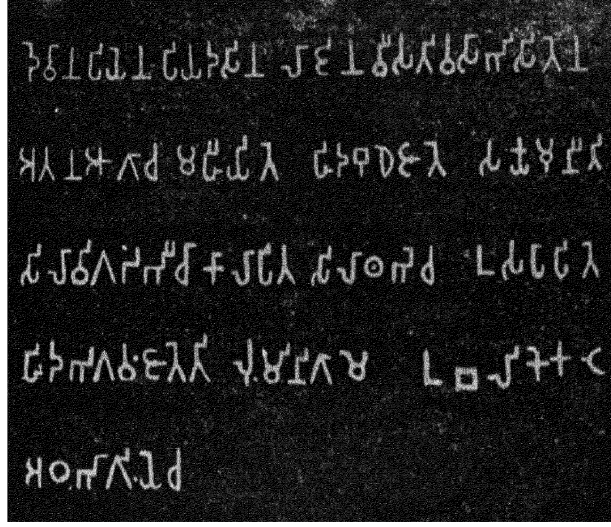 𑀤𑁂𑀯𑀸𑀦𑀧𑀺𑀬𑁂𑀦 𑀧𑀺𑀬𑀤𑀲𑀺𑀦 𑀮𑀸𑀚𑀺𑀦 𑀯𑀻𑀲𑀢𑀺𑀯𑀲𑀸𑀪𑀺𑀲𑀺𑀢𑁂𑀦
𑀅𑀢𑀦𑀆𑀕𑀸𑀘 𑀫𑀳𑀻𑀬𑀺𑀢𑁂 𑀳𑀺𑀤𑀩𑀼𑀥𑁂𑀚𑀸𑀢𑁂 𑀲𑀓𑁆𑀬𑀫𑀼𑀦𑀻𑀢𑀺
𑀲𑀺𑀮𑀸𑀯𑀺𑀕𑀥𑀪𑀺𑀘𑀸𑀓𑀸𑀮𑀸𑀧𑀺𑀢 𑀲𑀺𑀮𑀸𑀣𑀪𑁂𑀘 𑀉𑀲𑀧𑀸𑀧𑀺𑀢𑁂
𑀳𑀺𑀤𑀪𑀕𑀯𑀁𑀚𑀸𑀢𑁂𑀢𑀺 𑀮𑀼𑀁𑀫𑀺𑀦𑀺𑀕𑀸𑀫𑁂 𑀉𑀩𑀮𑀺𑀓𑁂𑀓𑀝𑁂
𑀅𑀞𑀪𑀸𑀕𑀺𑀬𑁂𑀘